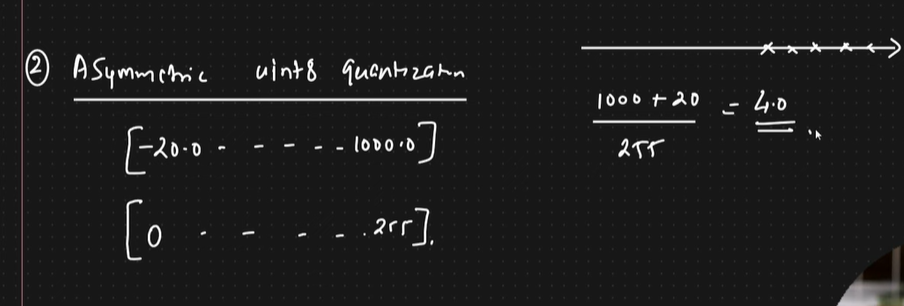 ② Asymmetric uint8 quantizatn
[-20.0 - - - - - - 1000.0]
[0 . - - - - . 255].
1000 + 20
255
= 4.0